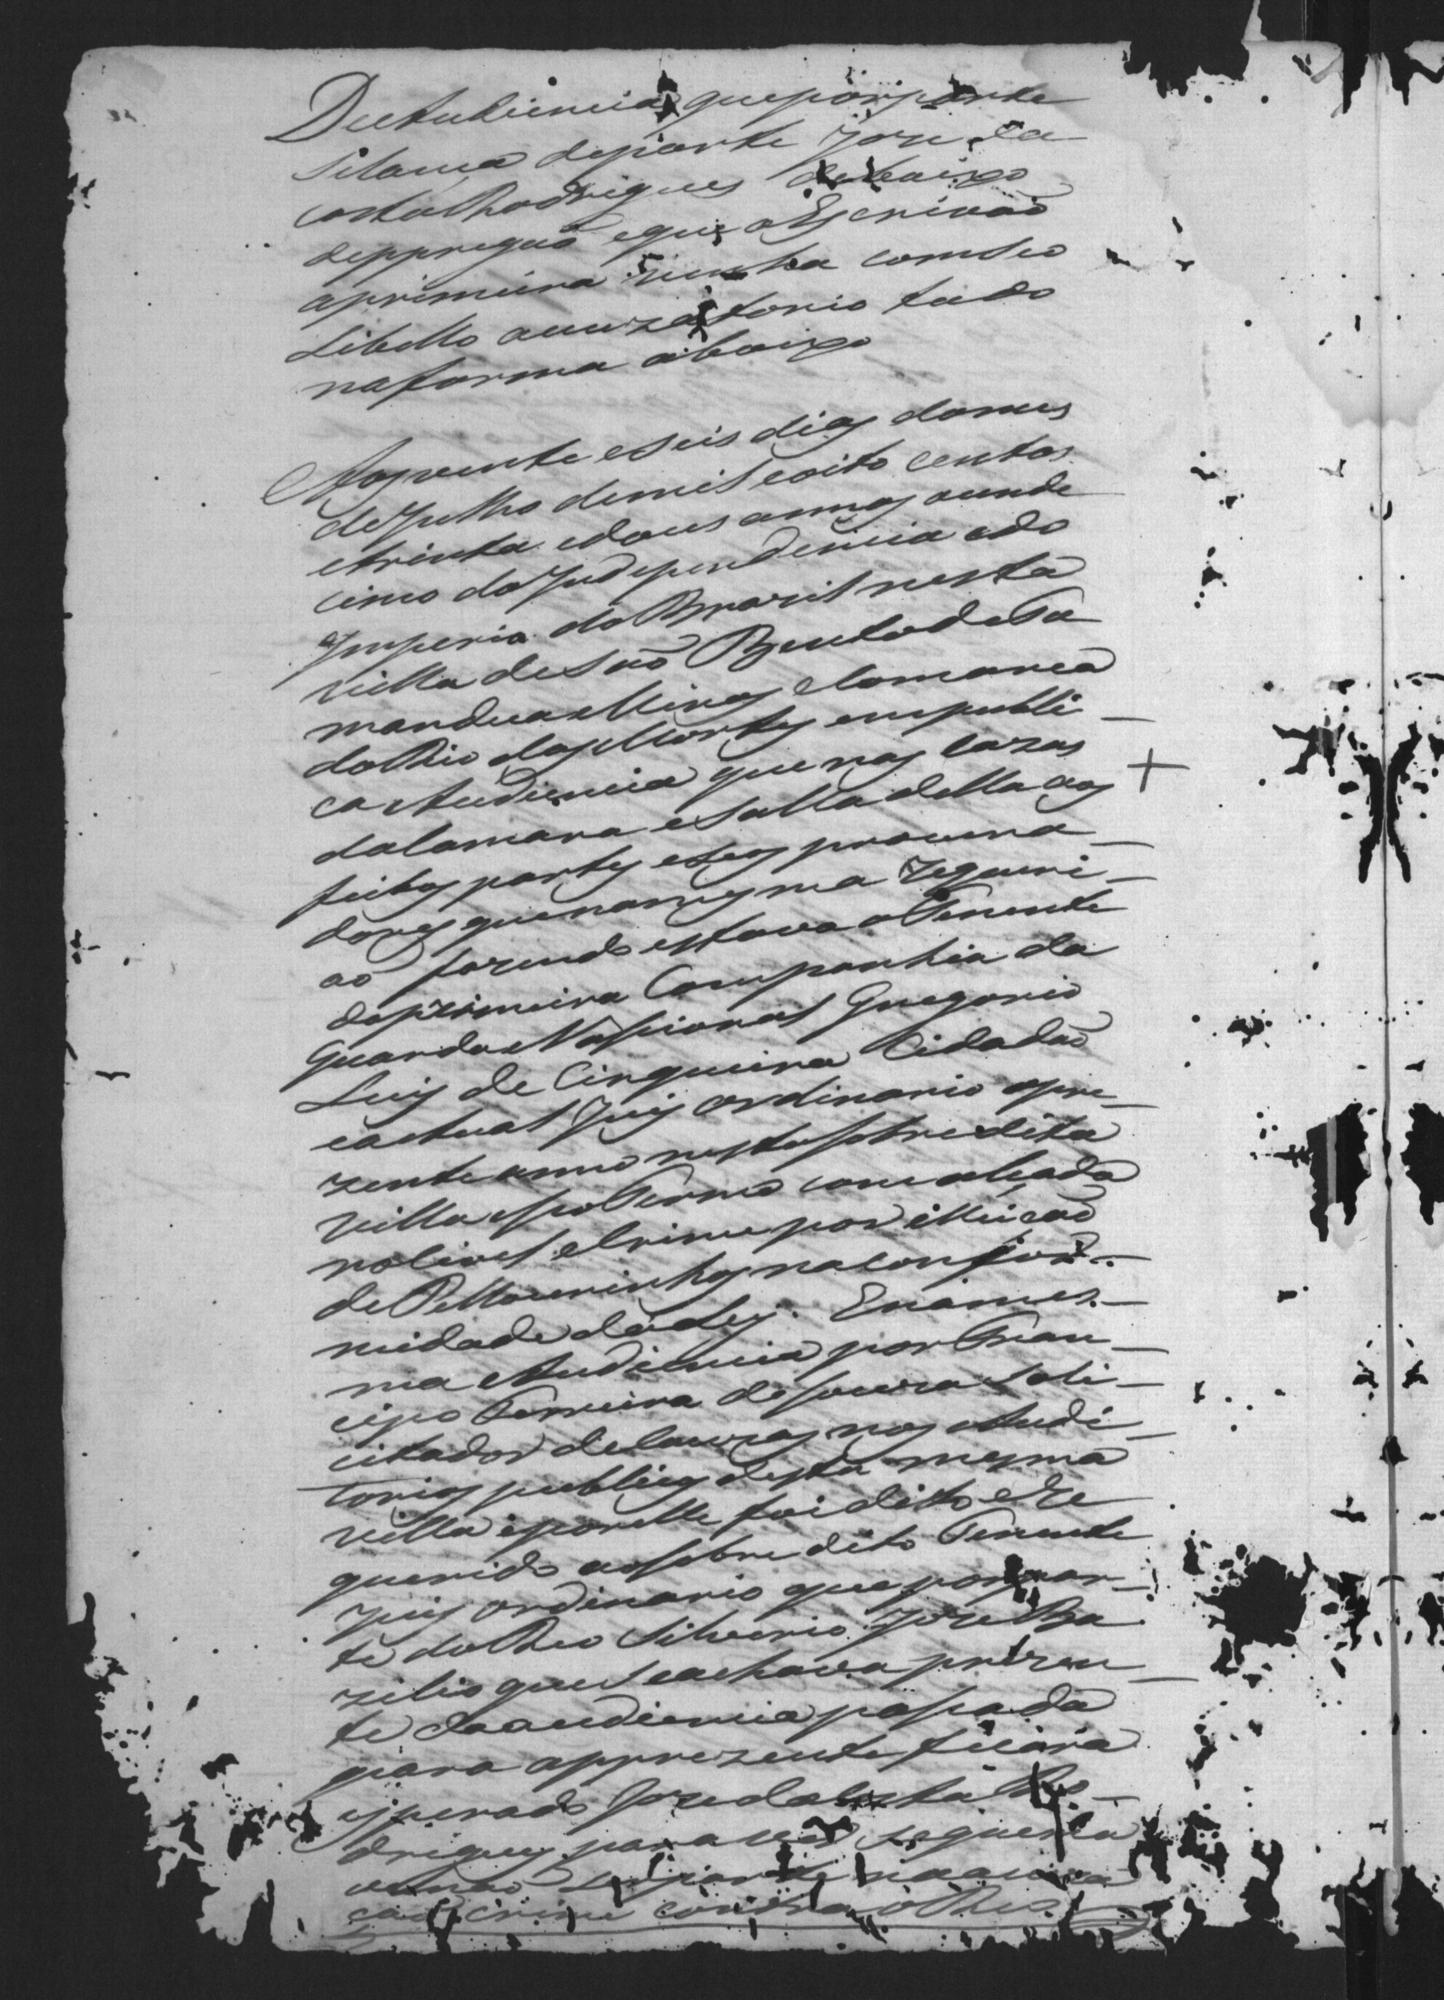 De Audiencia que por parte
Silancia de parte Joze da
Costa Rhodrigues debaixo
deppregaõ e que o Escrivaõ
aprimeira venha com seo
Libello acuzatorio tudo
na forma abaixo
Aos vente e seis dias do mes
de Julho de mil e oito centos
e trinta e dous annos onde
cimo da Independencia e do
Imperio do Brazil nesta
villa de Saõ Bento de Ta
mandua Minas e Comarca
do Rio das Mortes em publi
ca Audiencia que nas Cazas
da Camara e Salla della aos
feitos partes e seos procura
dores que na mesma requeri
ao fazendo estava o Tenente
da primeira Companhia da
Guarda Nascional Gregorio
Luis de Cirqueira Cidadaõ
e actual Juis ordinario o pre
zente anno nesta sobredita
villa e seo Termo com alcada
no Civel e Crime por elleicaõ
de Pellourinhos na confor
midade da Ley. E na mes
ma Audiencia por Fran
cisco Ferreira de Souza Soli
citador de Cauzas nos Audi
torios publicos desta mesma
villa e por elle foi dito e Re
querido ao sobredito Tenente
Juis ordinario que por par
te do Reo Silverio Joze Ba
zilio que se achava prezen
te da audiencia passada
para apprezente ficára
esperado Joze da Costa Ro
drigues para ver se queria
ou naõ se parte na acuza
caõ crime contra o Reo